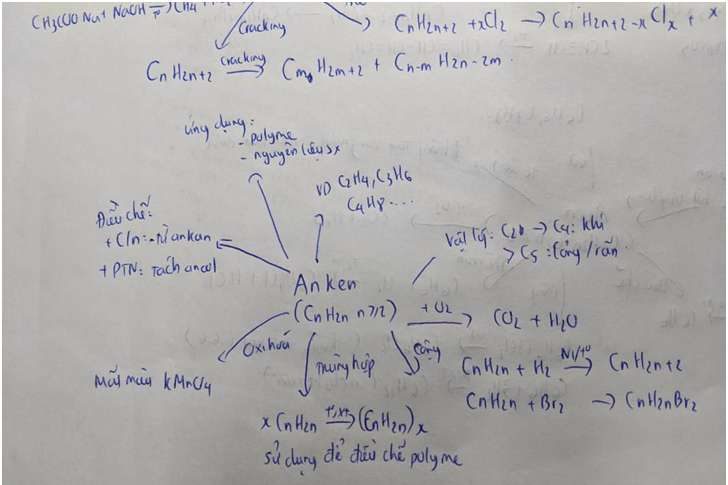 CH3COONa + NaOH → CH4 +
Cracking
CnH2n+2 + xCl2 → CnH2n+2-xClx + x
CnH2n+2 Cracking → CmH2m+2 + Cn-mH2n-2m.
ứng dụng:
- polyme
- nguyên liệu sx
VD C2H4, C3H6
C4H8 ....
Điều chế:
+ C/n: từ ankan
+ PTN: Tách ancol
Vật lý: C2 → C4: khí
> C5: lỏng/rắn.
Anken
(CnH2n n≥2)
+ O2
CO2 + H2O
Oxi hoá
Mất màu kMnO4
Trùng hợp
cộng
CnH2n + H2 Ni/to → CnH2n+2
CnH2n + Br2 → CnH2nBr2
x CnH2n to,xt → (CnH2n)x
sử dụng để điều chế polyme